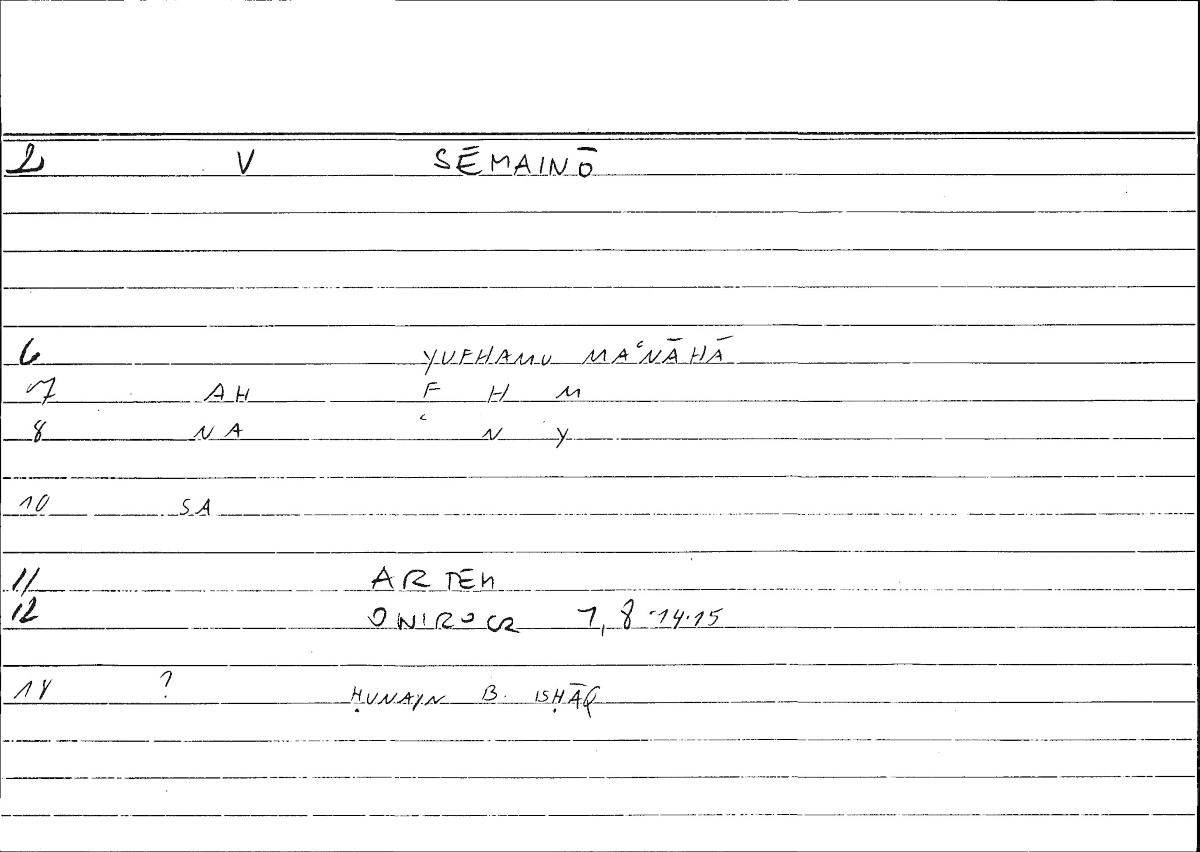 2 V SĒMAINŌ
6 YUFHAMU MAʿNĀHĀ
7 AH F H M
8 NA ʿ N Y
10 SA
11 ARTEM
12 ONIROCR 1, 8 ·14·15
14 ? ḤUNAYN B. ISḤĀQ